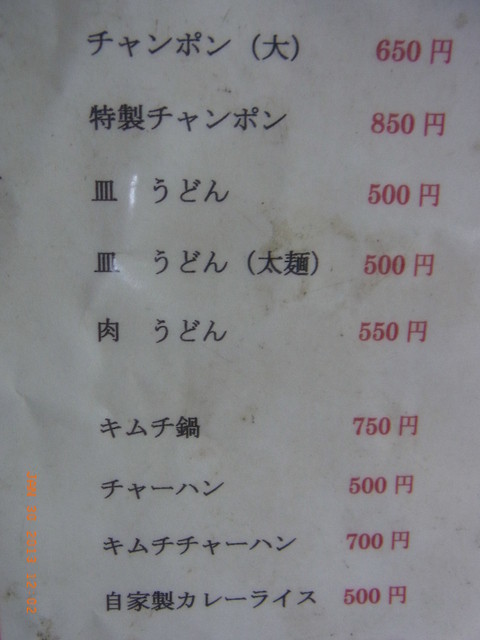 チャンポン（大） 650円
特製チャンポン 850円
皿　うどん 500円
皿　うどん（太麺） 500円
肉　うどん 550円
キムチ鍋 750円
チャーハン 500円
キムチチャーハン 700円
自家製カレーライス 500円